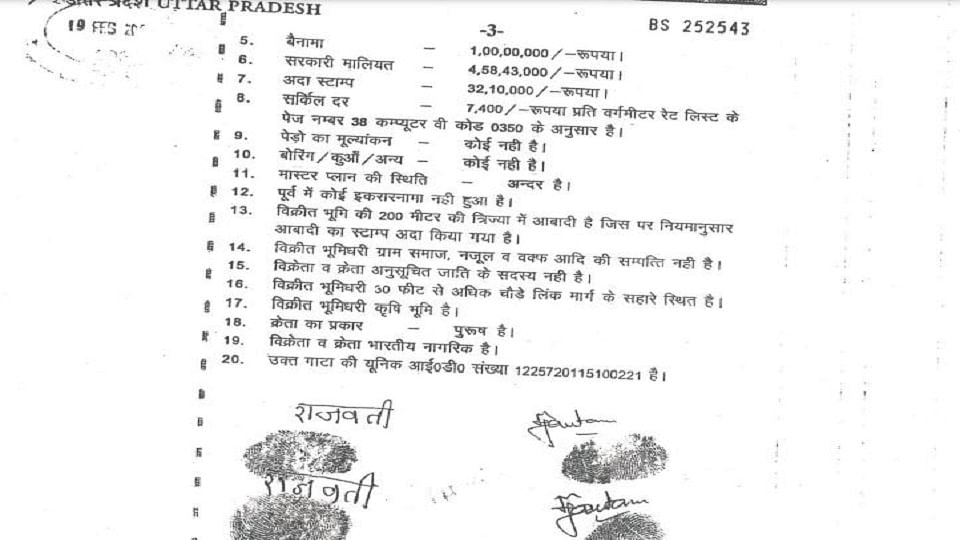 उत्तर प्रदेश UTTAR PRADESH
19 FEB
-3-
BS 252543
5. बैनामा – 1,00,00,000/-रूपया।
6. सरकारी मालियत – 4,58,43,000/-रूपया।
7. अदा स्टाम्प – 32,10,000/-रूपया।
8. सर्किल दर – 7,400/-रूपया प्रति वर्गमीटर रेट लिस्ट के
पेज नम्बर 38 कम्प्यूटर वी कोड 0350 के अनुसार है।
9. पेड़ो का मूल्यांकन – कोई नही है।
10. बोरिंग/कुऑं/अन्य – कोई नही है।
11. मास्टर प्लान की स्थिति – अन्दर है।
12. पूर्व में कोई इकरारनामा नही हुआ है।
13. विक्रीत भूमि की 200 मीटर की त्रिज्या में आबादी है जिस पर नियमानुसार
आबादी का स्टाम्प अदा किया गया है।
14. विक्रीत भूमिधरी ग्राम समाज, नजूल व वक्फ आदि की सम्पत्ति नही है।
15. विक्रेता व क्रेता अनुसूचित जाति के सदस्य नही है।
16. विक्रीत भूमिधरी 30 फीट से अधिक चौडे लिंक मार्ग के सहारे स्थित है।
17. विक्रीत भूमिधरी कृषि भूमि है।
18. क्रेता का प्रकार – पुरूष है।
19. विक्रेता व क्रेता भारतीय नागरिक है।
20. उक्त गाटा की यूनिक आई0डी0 संख्या 1225720115100221 है।
राजवती
राजवती